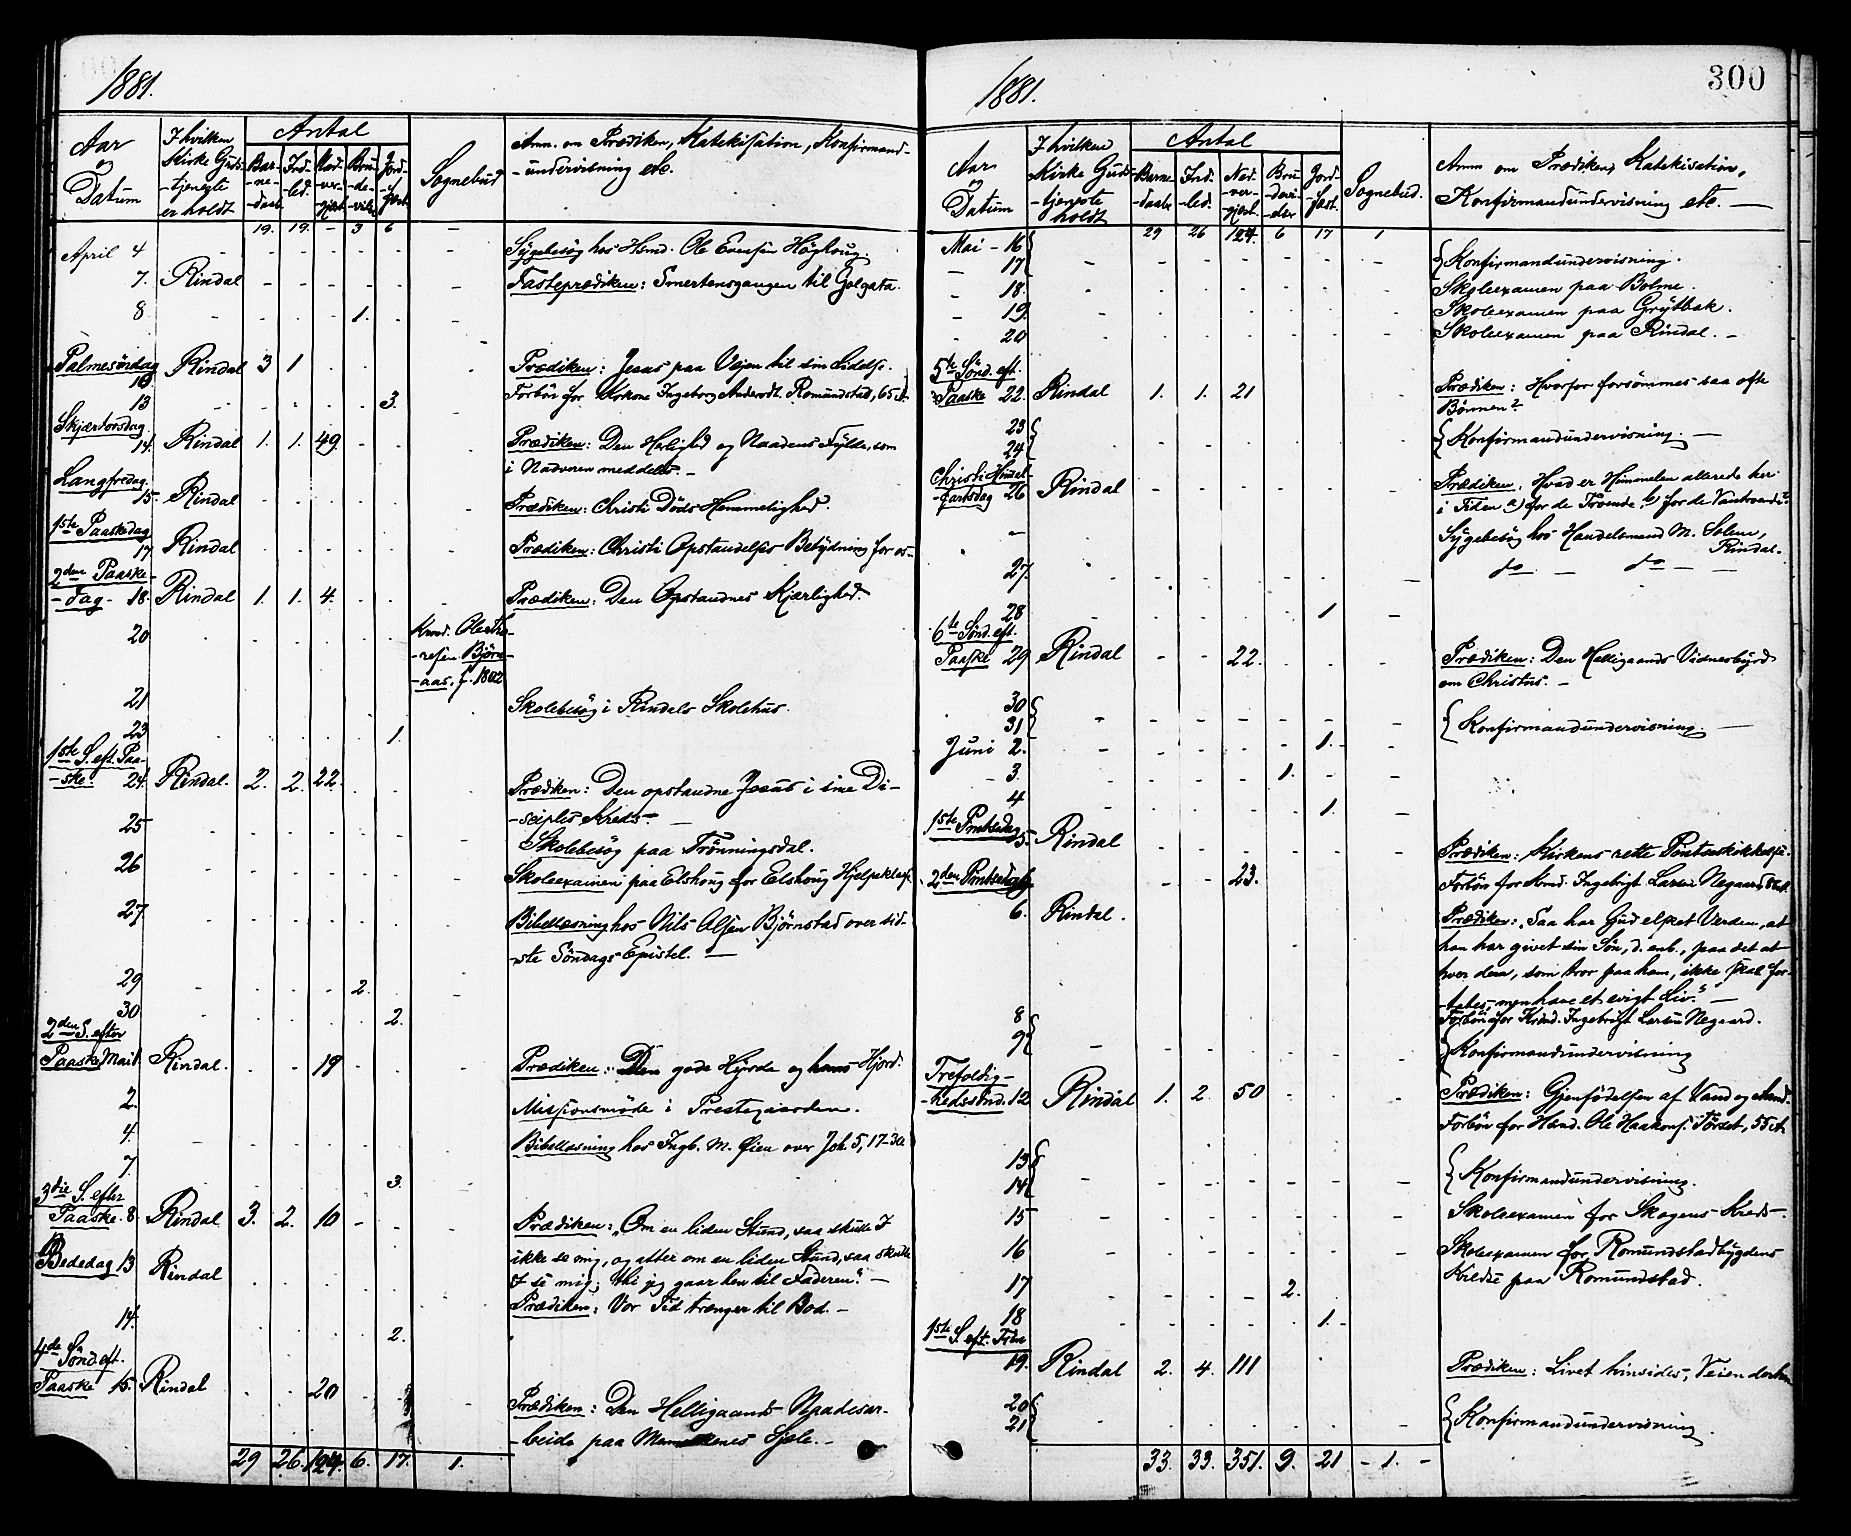 1881.
Aar og Datum | I hvilken Kirke Guds-tjeneste er holdt | Antal | Sognebud | Anm. om Prædiken, Katekisation, Konfirmand-
Bar-ne-daab. | Ind-led. | Nad-ver-gjæst. | Bru-de-vielse | Jord-fæst. | -undervisning etc.
19. 19. - 3 6 -
April 4 Sygebesøg hos Hsmd. Ole Evensen Høghoug.
7. Rindal Fasteprædiken: Smertensgangen til Golgata.
8 1.
Palmesøndag
10 Rindal 3 1 Prædiken: Jesus paa Vejen til sin Lidelse.
13 3. Forbøn for Kirkone Ingeborg Andersdt. Romundstad, 65 A.
Skjærtorsdag
14. Rindal 1. 1. 49. Prædiken: Den Herlighed og Naadens Fylde, som
i Nadveren meddeles. -
Langfredag.
15. Rindal Prædiken: Christi Døds Hemmelighed.
1ste Paaskedag
17. Rindal Prædiken: Christi Opstandelses Betydning for os -
2den Paaske-
-dag - 18. Rindal 1. 1. 4. Prædiken: Den Opstandnes Kjærlighed.
20 Bjørn-
-aas, f. 1802
21 Skolebesøg i Rindals Skolehus.
23 1.
1ste S. eft. Paa-
-ske. 24. Rindal. 2. 2. 22. Prædiken: Den opstandne Jesus i sine Di-
-sciples Kreds. -
25 Skolebesøg paa Trønningsdal.
26 Skoleexamen paa Elshoug for Elshoug Hjelpeklasse
27. Bibellæsning hos Nils Olsen Bjørnstad over sid-
-ste Søndags Epistel. -
29 2.
30 2.
2den S. efter
Paaske, Mai 1. Rindal. 19 Prædiken: Den gode Hyrde og hans Hjord.
2. Missionsmøde i Prestegaarden.
4. Bibellæsning hos Ingb. M. Øien over Joh. 5, 17-30
7 3.
3die S. efter
Paaske. 8. Rindal 3. 2. 10 Prædiken: "Om en liden Stund, saa skulle I
ikke se mig, og atter om en liden Stund, saa skulle
Bededag 13 Rindal I se mig; thi jeg gaar hen til Faderen". -
Prædiken: Vor Tid trænger til Bod. -
14. 2.
4de Sønd. eft.
Paaske 15. Rindal 20 Prædiken: Den Helligaands Naadesar-
-beide paa Menneskenes Sjæle. -
29 26. 124. 6. 17. 1.
300
1881.
Aar og Datum | I hvilken Kirke Guds-tjeneste holdt | Antal | Sognebud. | Anm om Prædiken, Katekisation,
Barne-daab | Ind-led. | Nad-ver-gjæst. | Bru-devi-elser | Jord-fæst. | Konfirmandundervisning etc. -
29 26 124. 6 17 1
Mai - 16
17 Konfirmandundervisning.
18. Skoleexamen paa Bolme.
19. Skoleexamen paa Grytbak.
20 Skoleexamen paa Rindal. -
5te Sønd. eft.
Paaske 22. Rindal 1. 1. 21 Prædiken: Hvorfor forsømmes saa ofte
Bønnen?
23
24 Konfirmandundervisning. -
Christi Himel-
-fartsdag 26 Rindal Prædiken: Hvad er Himmelen allerede her
i Tiden a) for de Troende b) for de Vantroende?
Sygebesøg hos Handelsmand M. Solem,
Rindal.
27. do - do - -
28 1
6te Sønd. eft.
Paaske 29 Rindal 22. Prædiken: Den Helligaands Vidnesbyrd
om Christus. -
30
31 Konfirmandundervisning -
Juni 2. 1.
3. 1.
4 1.
1ste Pintsedag
5. Rindal Prædiken: Kirkens rette
2den Pintsedag 23. Forbøn for Kmd. Ingebrigt Larsen Negaard
6. Rindal. Prædiken: "Saa har Gud elsket Verden, at
han har givet sin Søn, d. enb., paa det at
hver den, som tror paa ham, ikke skal for-
-tabes, men have et evigt Liv." -
8 Forbøn for Kmd. Ingebrigt Larsen Negaard.
9 Konfirmandundervisning
Trefoldig-
-hedssønd. 12 Rindal 1. 2. 50 Prædiken: Gjenfødelsen af Vand og Aand.
Forbøn for Hsmd. Ole Haakons. Tørset, 55 A.
13
14 Konfirmandundervisning.
15 Skoleexamen for Skogens Kreds -
16 Skoleexamen for Romundstadbygdens
17 2. Kreds paa Romundstad.
18 1.
1ste S. eft. Tref.
19. Rindal 2. 4. 111 Prædiken: Livet hinsides, Veien derhen
20
21 Konfirmandundervisning.
33. 33. 351. 9. 21 - 1. -